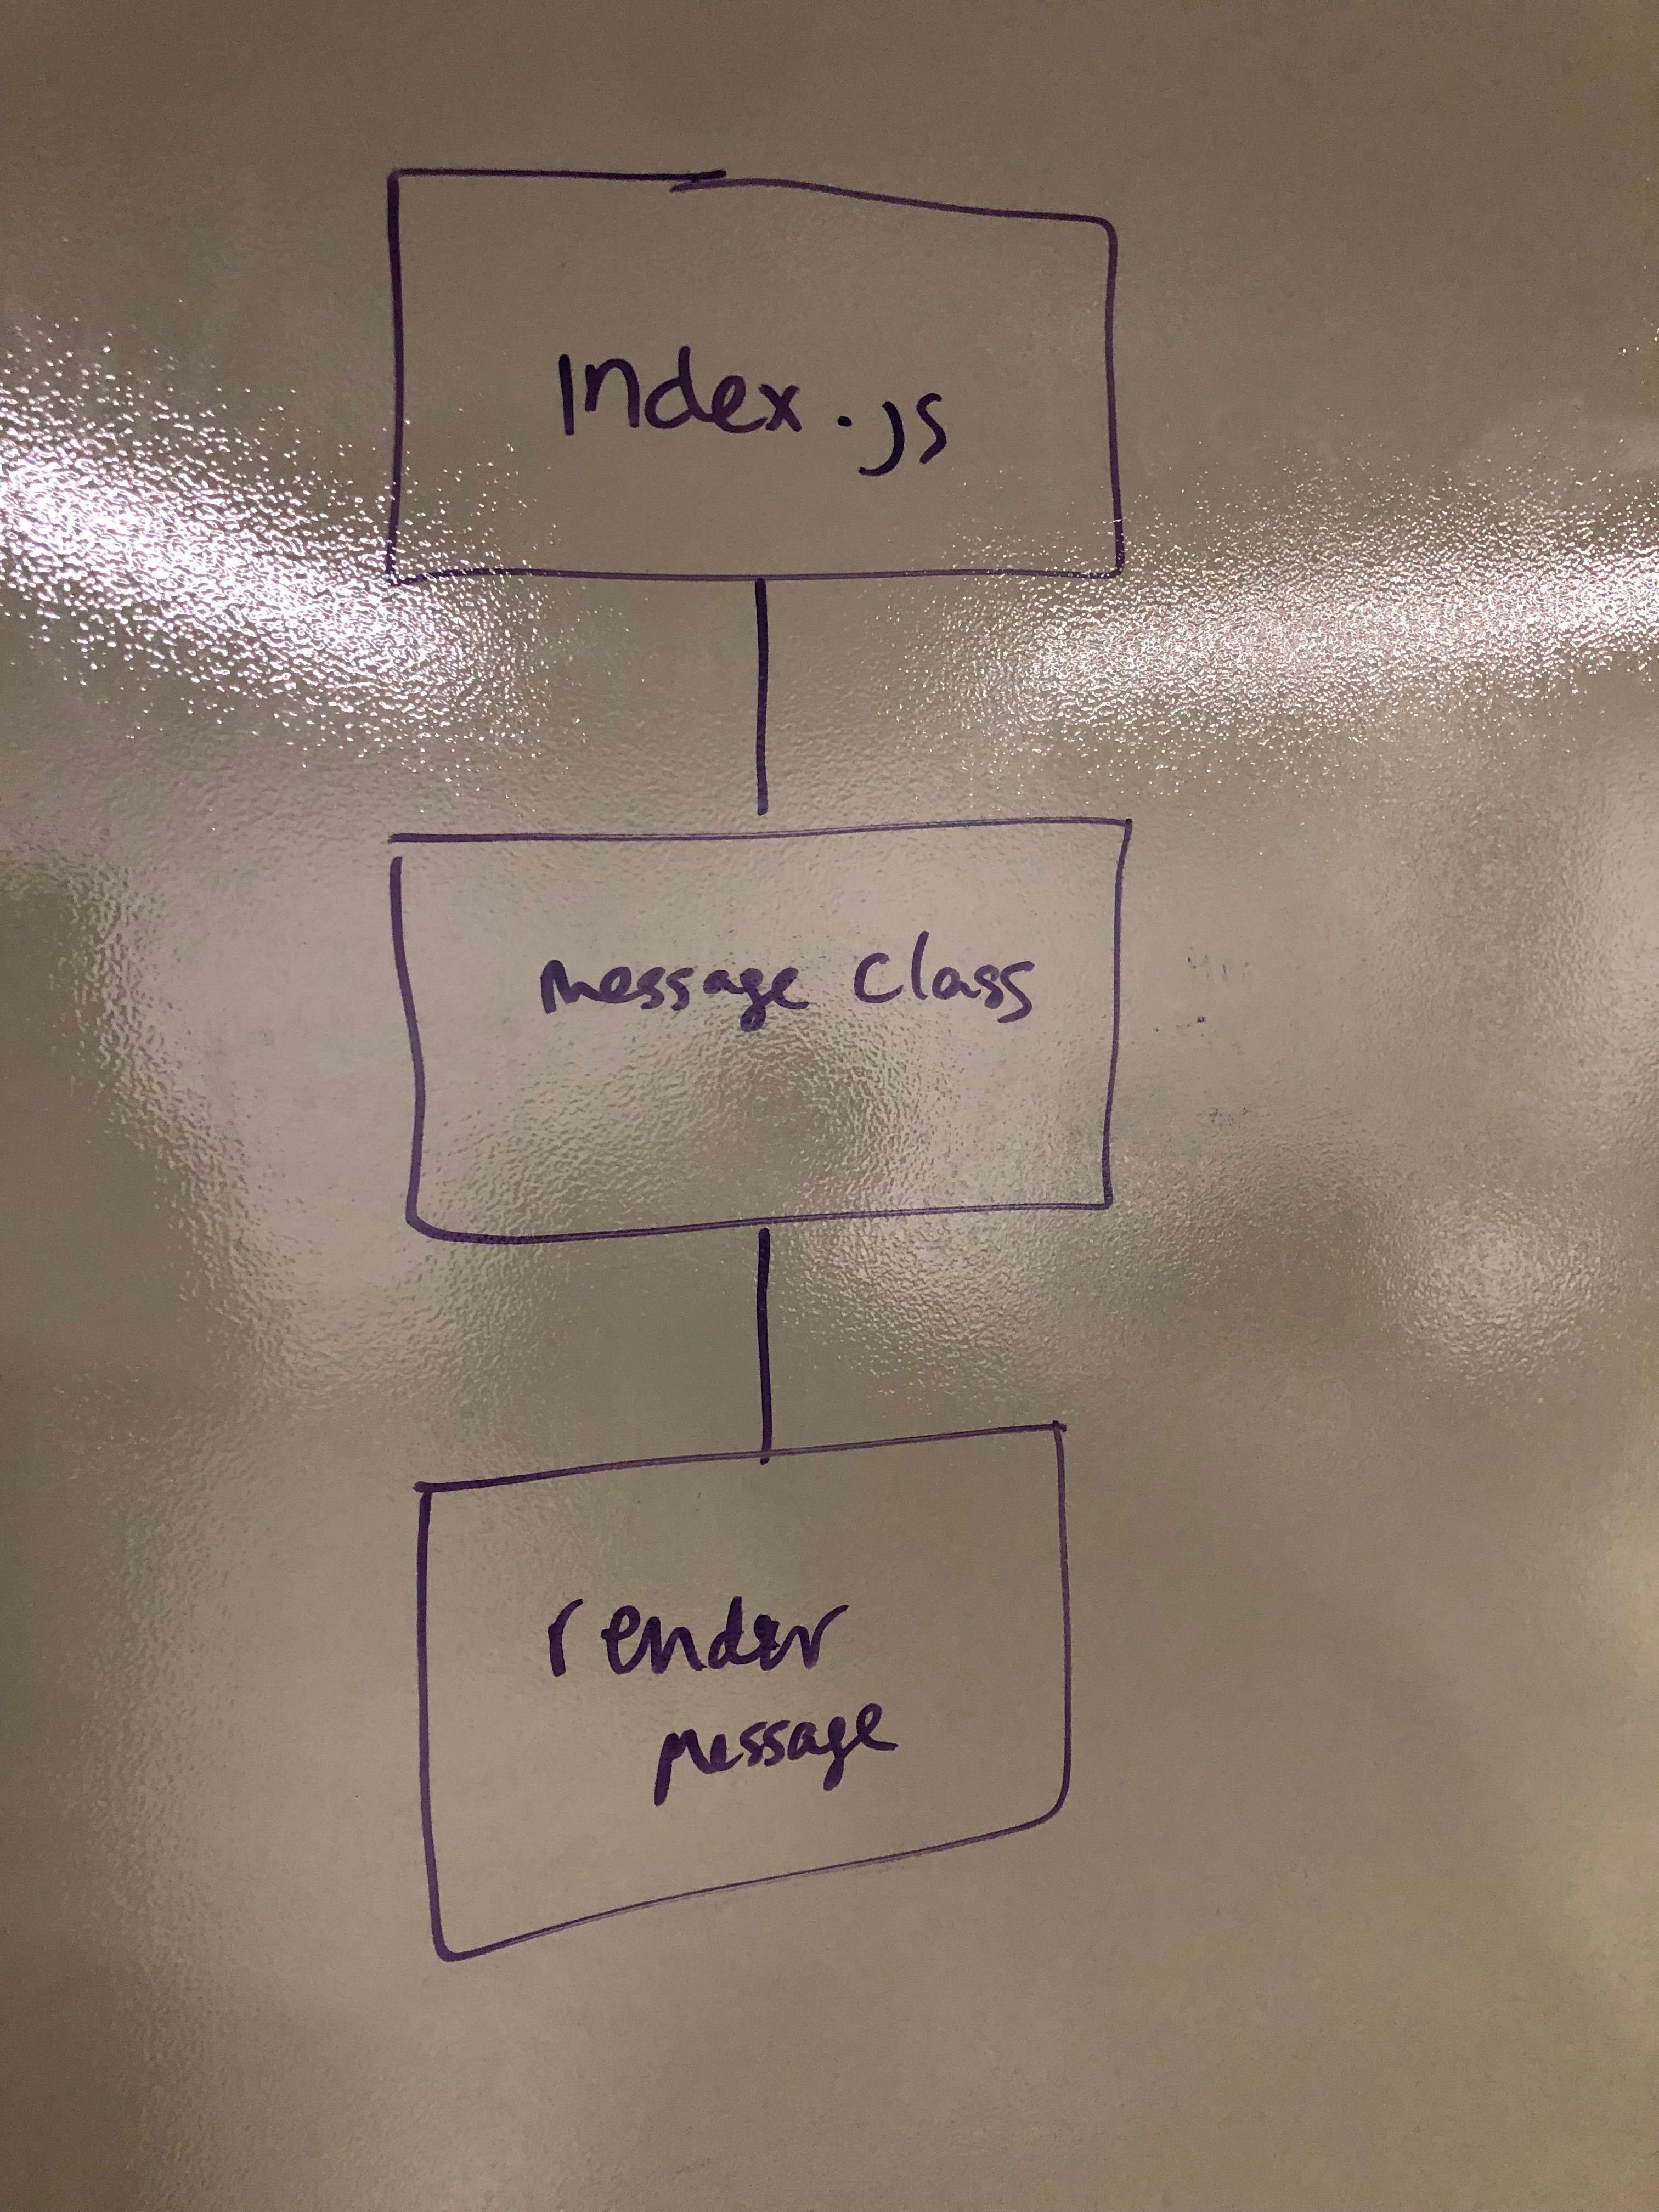 Index.js
message class
render
message